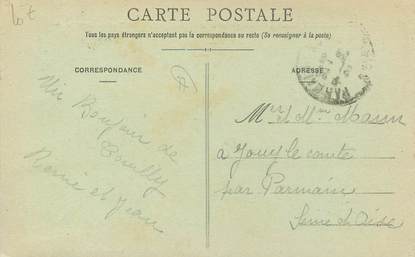 CARTE POSTALE
Tous les pays étrangers n'acceptent pas la correspondance au recto (Se renseigner à la poste)
CORRESPONDANCE
ADRESSE
Bonjour de
René et Jean
Mr et Mme Masson
à Jouy le comte
par Parmain
Seine et Oise